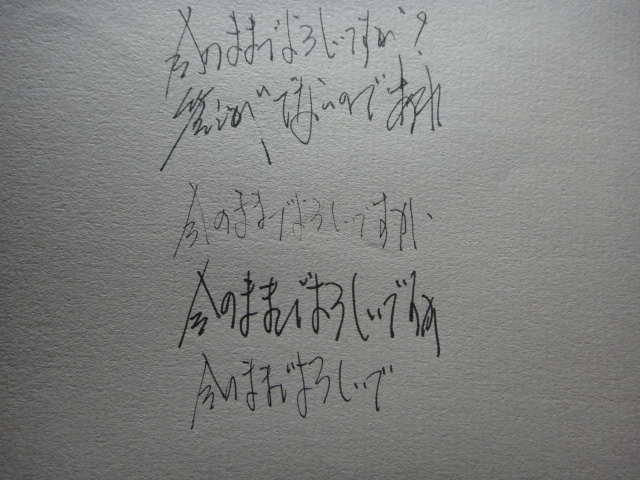 今のままでよろしいですか?
答えがでないので
今のままでよろしいですか、
今のままでよろしいで
今のままでよろしいで